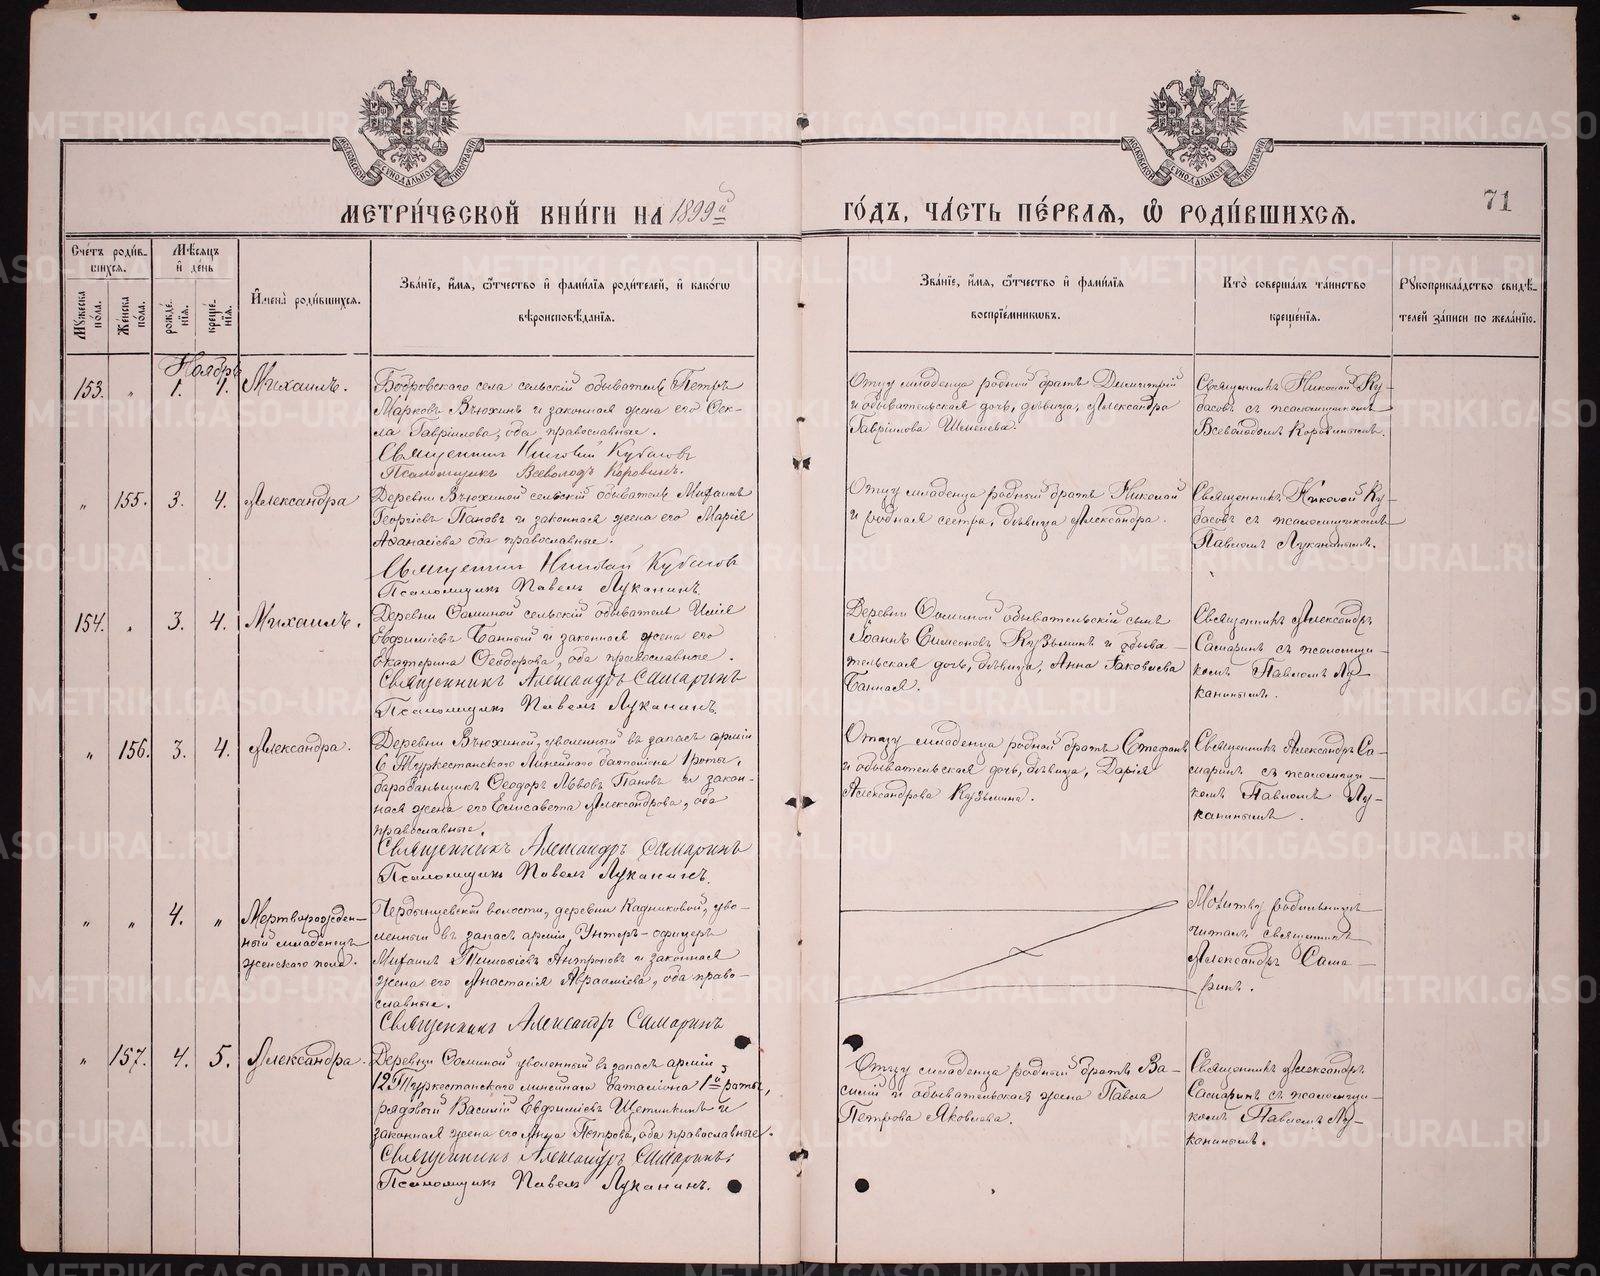 МЕТРИ́ЧЕСКОЙ КНИ́ГИ НА 1899й
ГО́ДЪ, ЧА́СТЬ ПЕ́РВАѦ, Ѡ҆ РОДИ́ВШИХСѦ.
71
Сче́тъ роди́в-
шихсѧ.
Мѣ́сѧцъ
и҆ де́нь
Мꙋ́жеска по́ла.
Же́нска по́ла.
рожде́-нїѧ.
креще́-нїѧ.
И҆мена̀ роди́вшихсѧ.
Зва́нїе, и҆́мѧ, ѻ҆́тчество и҆ фами́лїѧ роди́телей, и҆ како́гѡ
вѣроисповѣ́данїѧ.
Зва́нїе, и҆́мѧ, ѻ҆́тчество и҆ фами́лїѧ
воспрїе́мникѡвъ.
Кто̀ соверша́лъ та́инство
креще́нїѧ.
Рꙋкоприкла́дство свидѣ́-
телей за́писи по жела́нїю.
Ноябрь
153. " 1. 1. Михаилъ.
Бобровскаго села сельскій обыватель Петръ
Марковъ Вьюхинъ и законная жена его Фек-
ла Гавріилова, оба православные.
Священникъ Николай Кубасовъ
Псаломщикъ Всеволодъ Коровинъ.
Отцу младенца родной братъ Димитрій
и обывательская дочь, дѣвица, Александра
Гавріилова Шмелева.
Священникъ Николай Ку-
басовъ съ псаломщикомъ
Всеволодомъ Коровинымъ.
" 155. 3. 4. Александра
Деревни Вьюхиной сельскій обыватель Михаилъ
Георгіевъ Пановъ и законная жена его Марія
Аѳанасіева оба православные.
Священникъ Николай Кубасовъ
Псаломщикъ Павелъ Луканинъ.
Отцу младенца родный братъ Николай
и родная сестра, дѣвица Александра.
Священникъ Николай Ку-
басовъ съ псаломщикомъ
Павломъ Луканинымъ.
154. " 3. 4. Михаилъ.
Деревни Ѳоминой сельскій обыватель Илія
Евфиміевъ Банный и законная жена его
Екатерина Ѳеодорова, оба православные.
Священникъ Александръ Самаринъ
Псаломщикъ Павелъ Луканинъ.
Деревни Ѳоминой обывательскій сынъ
Іоаннъ Симеоновъ Кузьминъ и обыва-
тельская дочь, дѣвица, Анна Іаковлева
Банная.
Священникъ Александръ
Самаринъ съ псаломщи-
комъ Павломъ Лу-
канинымъ.
" 156. 3. 4. Александра.
Деревни Вьюхиной, уволенный въ запасъ арміи
6 Туркестанскаго Линейнаго баталіона 1 роты,
барабаньщикъ Ѳеодоръ Львовъ Пановъ и закон-
ная жена его Елисавета Александрова, оба
православные.
Священникъ Александръ Самаринъ
Псаломщикъ Павелъ Луканинъ.
Отцу младенца родной братъ Стефанъ
и обывательская дочь, дѣвица, Дарія
Александрова Кузьмина.
Священникъ Александръ Са-
маринъ съ псаломщи-
комъ Павломъ Лу-
канинымъ.
" " 4. " Мертворожден-
ный младенецъ
женскаго пола.
Пердыщевской волости, деревни Кадниковой, уво-
ленный въ запасъ арміи, Унтеръ-офицеръ
Михаилъ Тимоѳіевъ Антроповъ и законная
жена его Анастасія Авраамиева, оба право-
славные.
Священникъ Александръ Самаринъ
Молитву родильницѣ
читалъ священникъ
Александръ Сама-
ринъ.
" 157. 4. 5. Александра.
Деревни Ѳоминой уволенный въ запасъ арміи
12 Туркестанскаго линейнаго баталіона 1й роты,
рядовой Василій Евфиміевъ Щетинкинъ и
законная жена его Анна Петрова, оба православные.
Священникъ Александръ Самаринъ.
Псаломщикъ Павелъ Луканинъ.
Отцу младенца родный братъ Ва-
силій и обывательская жена Павла
Петрова Яковлева.
Священникъ Александръ
Самаринъ съ псаломщи-
комъ Павломъ Лу-
канинымъ.
METRIKI.GASO-URAL.RU